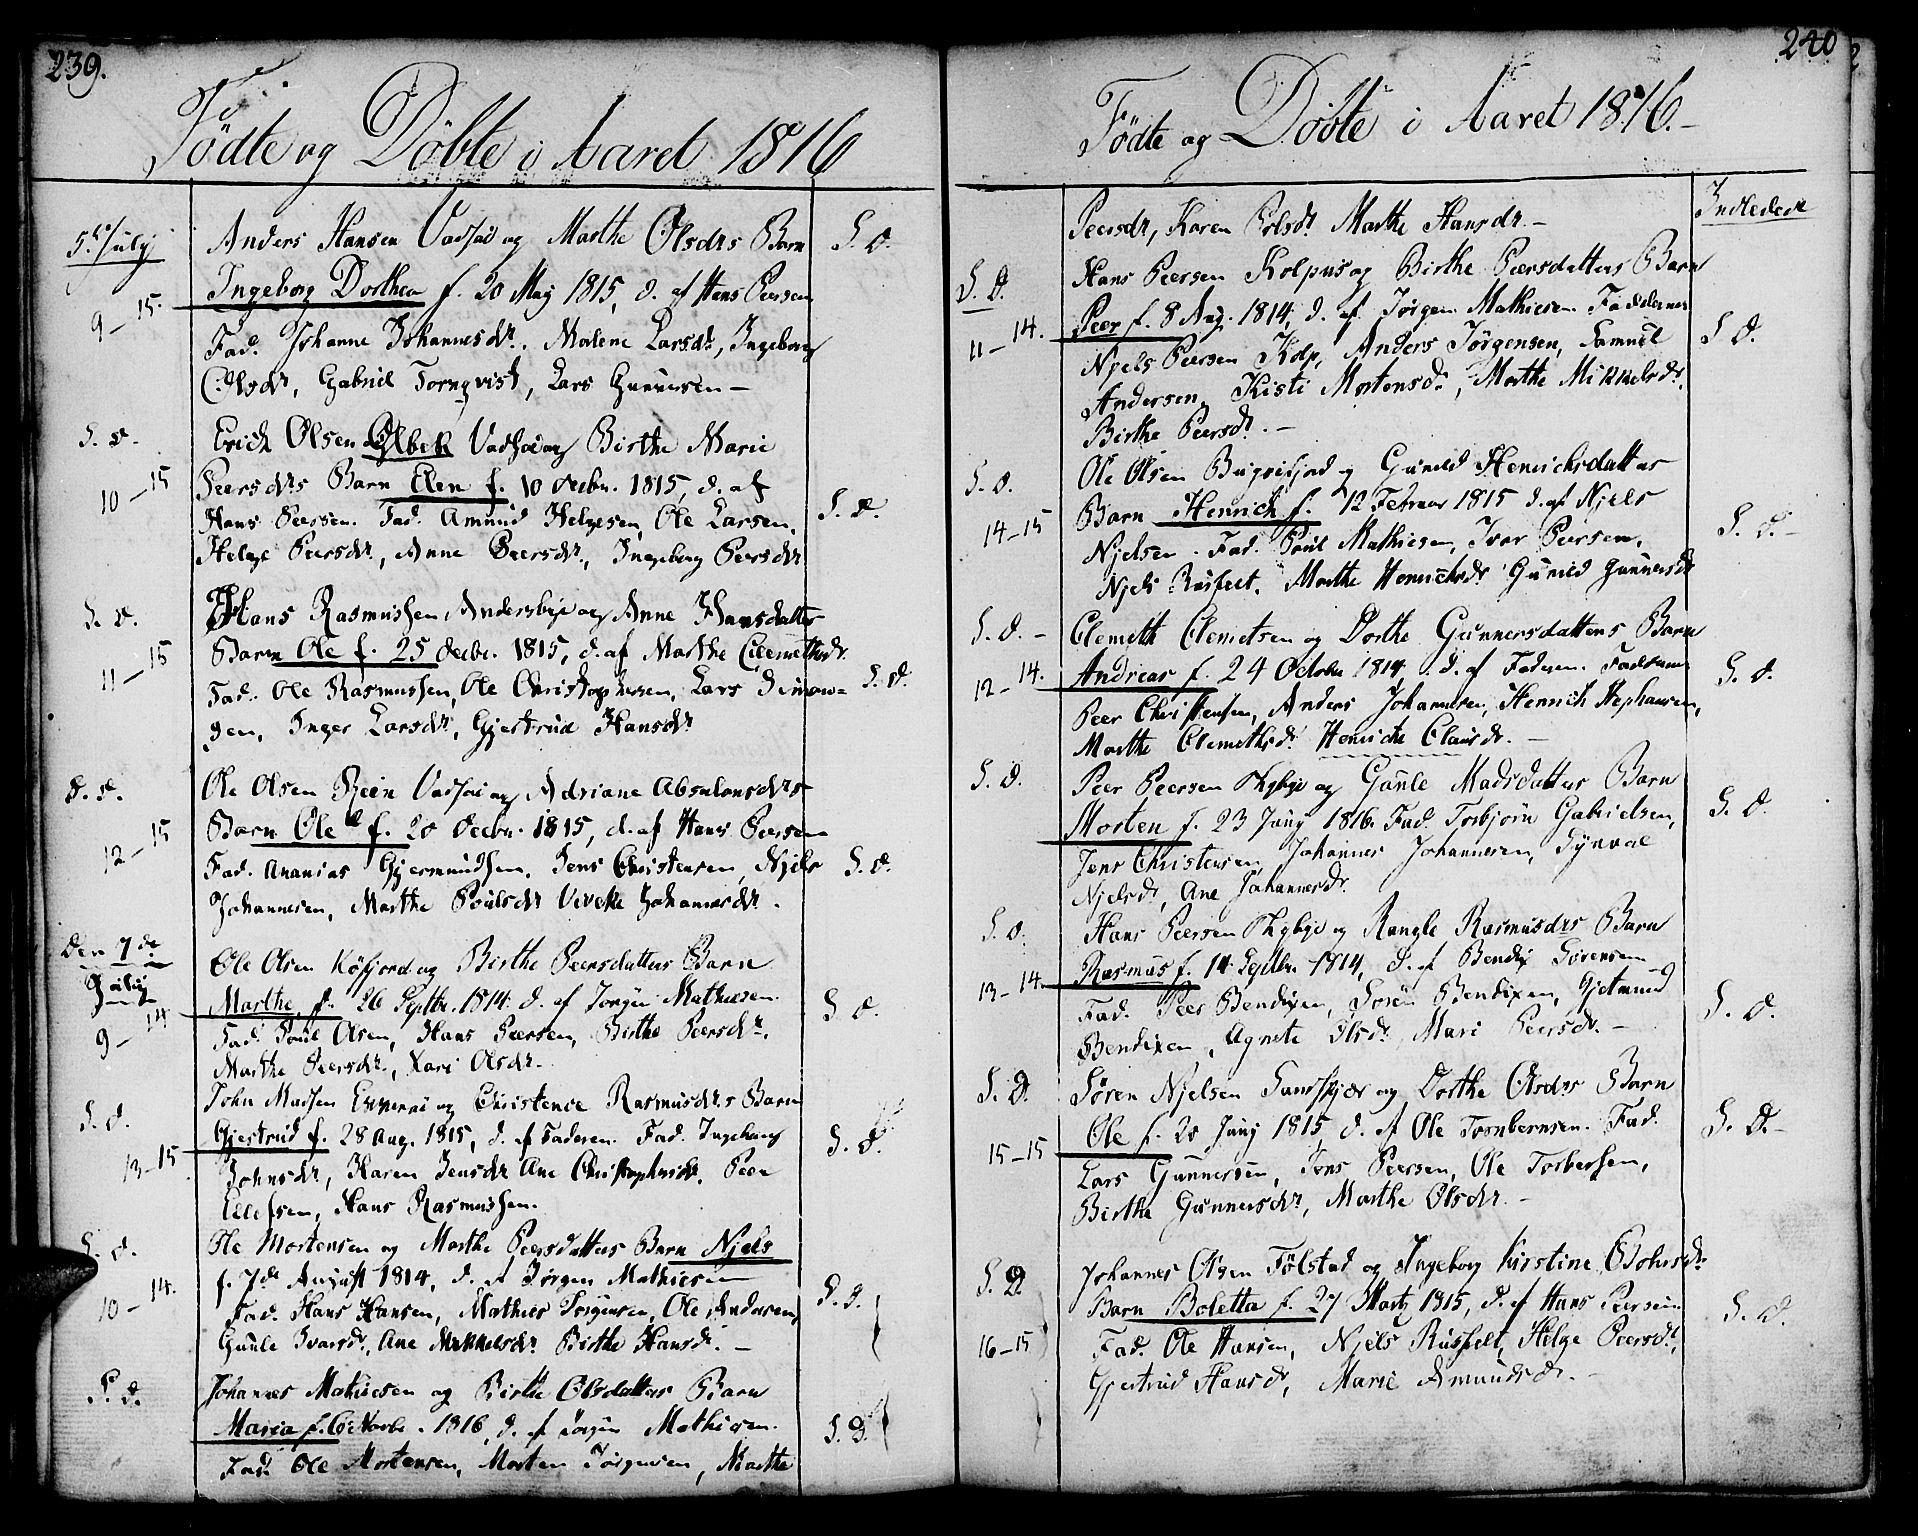 239.
Födte og Döbte i Aaret 1816
5te July
Anders Hansen Vadsøe og Marthe Olsdrs Barn
S. D.
Ingeborg Dorthea f. 20 May 1815, d. af Hans Peersen
9-15.
Fad. Johanne Johannesdr. Malene Larsdr, Ingeborg
Olsdr, Gabriel Tornqvist, Lars Gunnersen -
S. D.
Erich Olsen Vadsøe og Birthe Marie
10-15
Peersdrs Barn Elen f. 10 Decbr. 1815, d. af
Hans Peersen. Fad. Amund Helgesen, Ole Larsen,
S. D.
Helge Peersdr, Anne Peersdr, Ingeborg Peersdr
S. D.
Hans Rasmussen Andersbye og Anne Hansdatter
Barn Ole f. 25 Decbr. 1815, d. af Marthe Clemethsdr.
11-15
Fad. Ole Rasmussen, Ole Christophersen, Lars
S. D.
Inger Larsdr, Gjertrud Hansdr
S. D.
Ole Olsen Rein Vadsøe og Adriane Absalonsdrs
12-15
Barn Ole f. 20 Decbr. 1815, d. af Hans Peersen
Fad. Ananias Gjermundsen, Jens Christensen, Njels
S. D.
Johannesen, Marthe Poulsdr Viveke Johannesdr.
Den 7de July
Ole Olsen Köfjord og Birthe Peersdatters Barn
Marthe f. 26 Septbr. 1814. d. af Jørgen Mathiesen.
S. D.
9-14
Fad. Poul Olsen, Hans Peersen, Birthe Peersdr.
Marthe Peersdr, Kari Olsdr.
S. D.
John Madsen Ekkerøe og Christence Rasmusdrs Barn
Gjertrud f. 28 Aug. 1815, d. af Faderen. Fad. Ingeborg
S. D.
13-15
Johnsdr, Karen Jensdr Ane Christophersdr. Peer
Ellefsen, Hans Rasmussen.
S. D.
Ole Mortensen og Marthe Peersdatters Barn Njels
f. 7de August 1814, d. af Jörgen Mathiesen
S. D.
10-14.
Fad. Hans Hansen, Mathies Jörgensen, Ole Andersen,
Gunle Ivarsdr, Ane Mikkelsdr Birthe Hansdr. -
S. D.
Johannes Mathiesen og Birthe Olsdatters Barn
Maria f. Novbr. 1816, d. af Jörgen Mathiesen.
S. D.
Fad. Ole Mortensen, Morten Jörgensen, Marthe
240
Födte og Döbte i Aaret 1816.-
Indledede
Peersdr, Karen Marthe Hansdr -
S. D.
Hans Peersen Kolpus og Birthe Peersdatters Barn
11-14.
Peer f. 8 Aug. 1814, d. af Jørgen Mathiesen. Fadderne
S. D.
Njels Peersen Kolp, Anders Jørgensen, Samuel
Andersen, Kisti Mortensdr, Marthe Mikkelsdr,
Birthe Peersdr. -
S. D.
Ole Olsen Bugöifjord og Guneld Henrichsdatters
14-15
Barn Henrich f. 12 Februar 1815 d. af Njels
S. D. -
Njelsen. Fad. Poul Mathiesen, Ivar Peersen,
Njels Rusfelt. Marthe Henrichsdr Guneld Gunnersdr
S. D. -
Clemeth Clemetsen og Dorthe Gunnersdatters Barn
12-14.
Andreas f. 24 October 1814, d. af Faderen. Fadderne
S. D.
Peer Christensen, Anders Johannesen, Henrich Stephansen,
Marthe Clemethsdr. Henriche Clausdr. -
S. D.
Peer Peersen Thybye og Gunle Madsdatters Barn
S. D.
Morten f. 23 Juny 1816. Fad. Torbjörn Gabrielsen,
Jens Christensen, Johannes Johannesen, Synval
Njelsdr, Ane Johannesdr.
S. D.
Hans Peersen Thybye og Rangle Rasmusdrs Barn
13-14.
Rasmus f. 14 Septbr. 1814, d. af Bendix Sörensen
Fad. Peer Bendixen, Sören Bendixen, Gjetmund
S. D.
Bendixen, Agnete Olsdr, Mari Peersdr. -
S. D.
Søren Njelsen Sandskjær og Dorthe Olsdrs Barn
15-15
Ole f. 20 Juny 1815, d. af Ole Torbernsen. Fad.
S. D. -
Lars Gunnersen, Jens Peersen, Ole Torbersen,
Birthe Gunnersdr, Marthe Olsdr. -
S. D.
Johannes Olsen Fölstad og Ingeborg Kirstine
16-15
Barn Boletta f. 27 Martz 1815, d. af Hans Peersen
S. D.
Fad. Ole Hansen, Njels Rusfelt, Helge Peersdr,
Gjertrud Hansdr, Marie Amundsdr. -